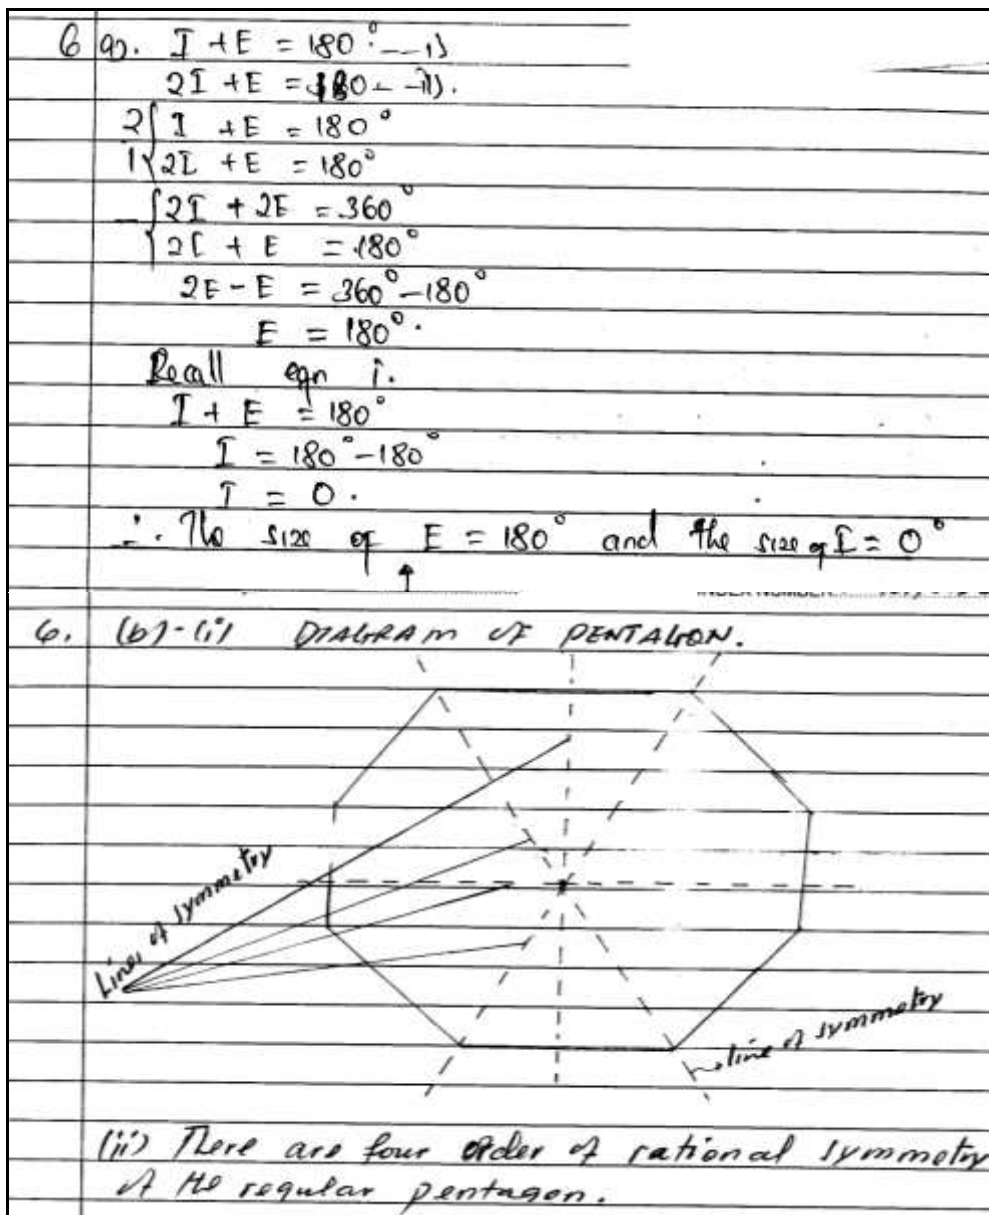 6 a). I + E = 180° --- i)
2I + E = 180 - - ii).
2 { I + E = 180°
1 { 2I + E = 180°
- { 2I + 2E = 360°
{ 2I + E = 180°
2E - E = 360° - 180°
E = 180°.
Recall eqn i.
I + E = 180°
I = 180° - 180°
I = 0.
∴ The size of E = 180° and the size of I = 0°
6. (b)-(i) DIAGRAM OF PENTAGON.
Lines of symmetry
line of symmetry
(ii) There are four order of rational symmetry
of the regular pentagon.